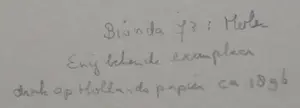 Bionda 73: Merlen
Enig bekende exemplaar
druk op Hollands papier ca 1896